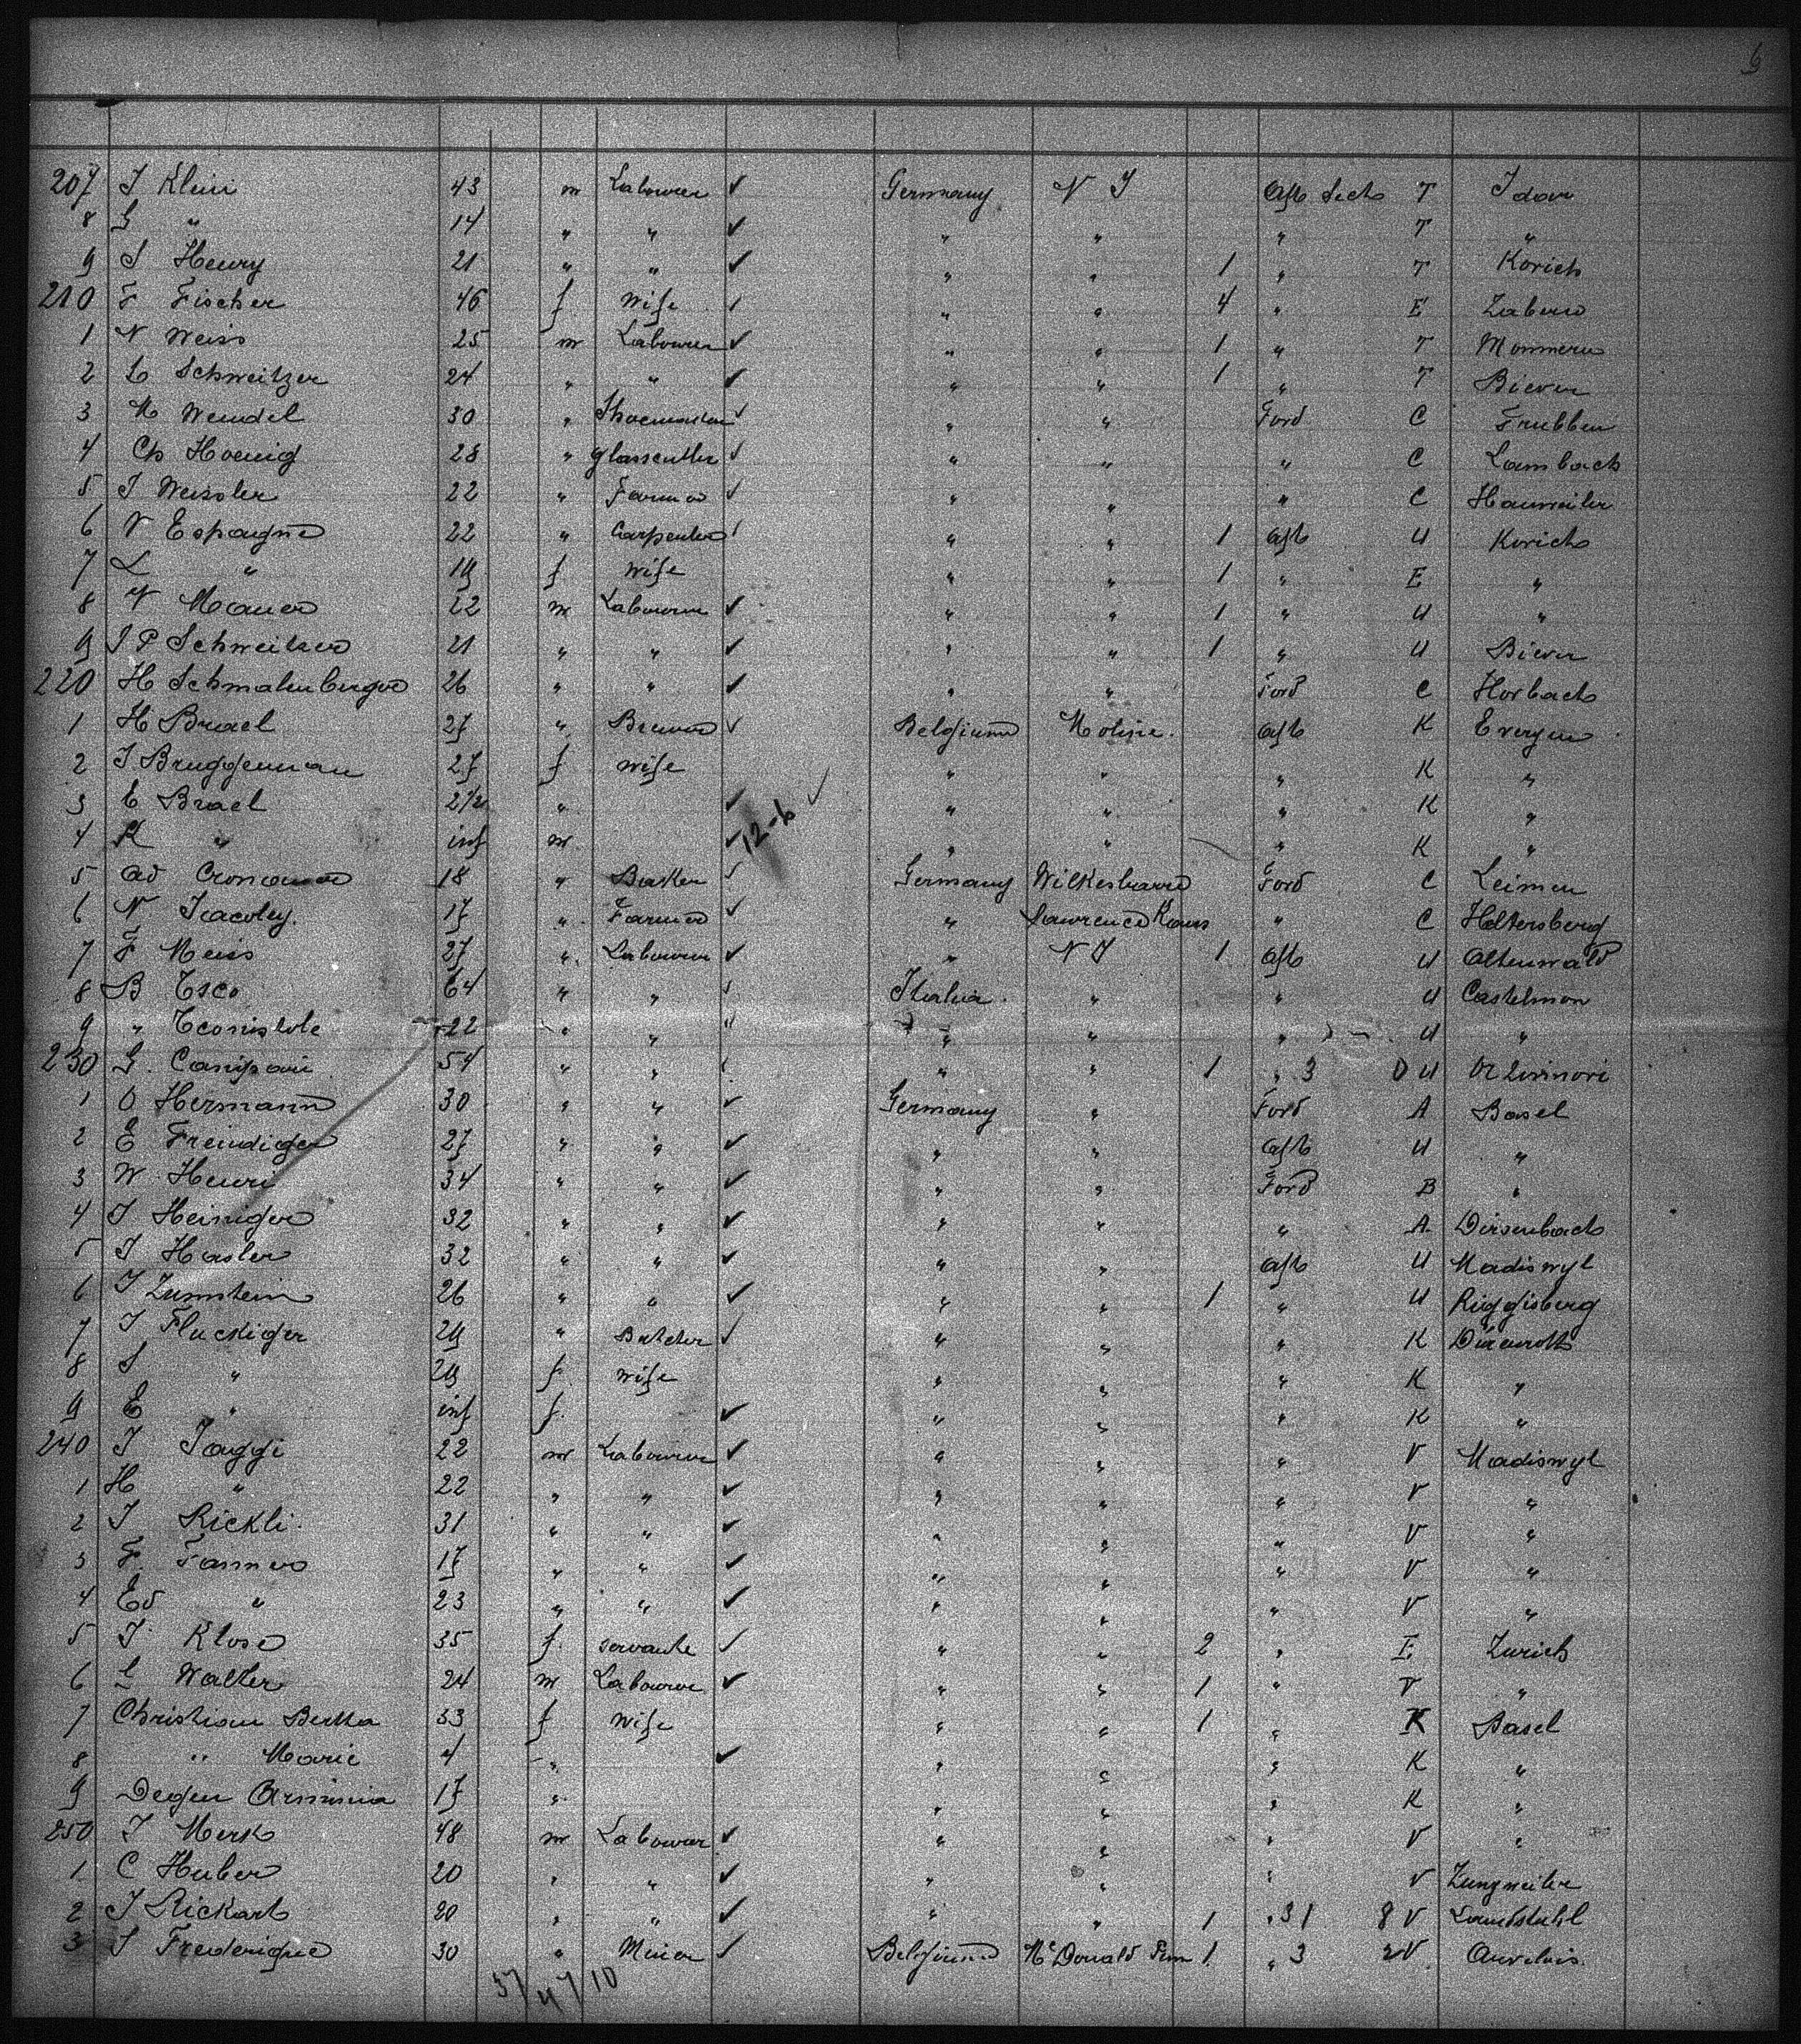 6
207 J Klein 43 m Labourer ✓ Germany N Y Aft Sect T Idar
8 G " 14 " " ✓ " " " T "
9 S Henry 21 " " ✓ " " 1 " T Korich
210 F Fischer 46 f Wife ✓ " " 4 " E Zabern
1 N Weiss 25 m Labourer ✓ " " 1 " T Mommern
2 C Schweitzer 24 " " ✓ " " 1 " T Biever
3 M Wendel 30 " Shoemaker ✓ " " Ford C Trubben
4 Ch Hoenig 28 " glasscutter ✓ " " " C Lambach
5 J Weissler 22 " Farmer ✓ " " " C Hanweiler
6 N Espagne 22 " Carpenter ✓ " " 1 Aft U Korich
7 L " 19 f Wife " " 1 " E "
8 N Maner 22 m Labourer ✓ " " 1 " U "
9 J P Schweitzer 21 " " ✓ " " 1 " U Biever
220 H Schmalenberger 26 " " ✓ " " Ford C Horbach
1 H Brael 27 " Brewer ✓ Belgium Moline Aft K Evergem
2 J Bruggeman 27 f Wife " " " K "
3 E Brael 2 1/2 " ✓ " " " K "
12-6 ✓
4 R " inf m ✓ " " " K "
5 Ad Cronauer 18 " Baker ✓ Germany Wilkesbarre Ford C Leimen
6 N Jacoley 17 " Farmer ✓ " Lawrence Kans " C Heltersberg
7 F Meiss 27 " Labourer ✓ " N Y 1 Aft U Altenwald
8 B Tsco 64 " " ✓ Italia " " U Castelmon
9 " 22 " " " " " " U "
230 G. Campari 54 " " " " 1 " 3 D U
1 O Hermann 30 " " ✓ Germany " Ford A Basel
2 E Freudiger 27 " " ✓ " " Aft U "
3 W Henri 34 " " ✓ " " Ford B "
4 J Heiniger 32 " " ✓ " " " A Dirsenbach
5 J Hasler 32 " " ✓ " " Aft U Madiswyl
6 J Zumstein 26 " " ✓ " " 1 " U Riggisberg
7 J Fluckiger 29 " Butcher ✓ " " " K Dürenroth
8 S " 29 f Wife " " " K "
9 E " inf f. ✓ " " " K "
240 J Jaggi 22 m Labourer ✓ " " " V Madiswyl
1 H " 22 " " ✓ " " " V "
2 J Rickli 31 " " ✓ " " " V "
3 F. Tanner 17 " " ✓ " " " V "
4 Ed " 23 " " ✓ " " " V "
5 J. Klose 35 f servante ✓ " " 2 " E Zurich
6 L Walter 24 m Labourer ✓ " " 1 " V "
7 Christian Bertha 33 f Wife " " 1 " K Basel
8 " Marie 4 " ✓ " " " K "
9 Degen Arminia 17 " " " " K "
250 J Merk 48 m Labourer ✓ " " " V "
1 C Huber 20 " " ✓ " " " V Zungweiler
2 J Rickart 20 " " ✓ " " 1 " 31 8 V Landstuhl
3 J Frederique 30 " Miner ✓ Belgium Mc Donald Penn 1 " 3 2 V Auvelais
37 / 4 / 10